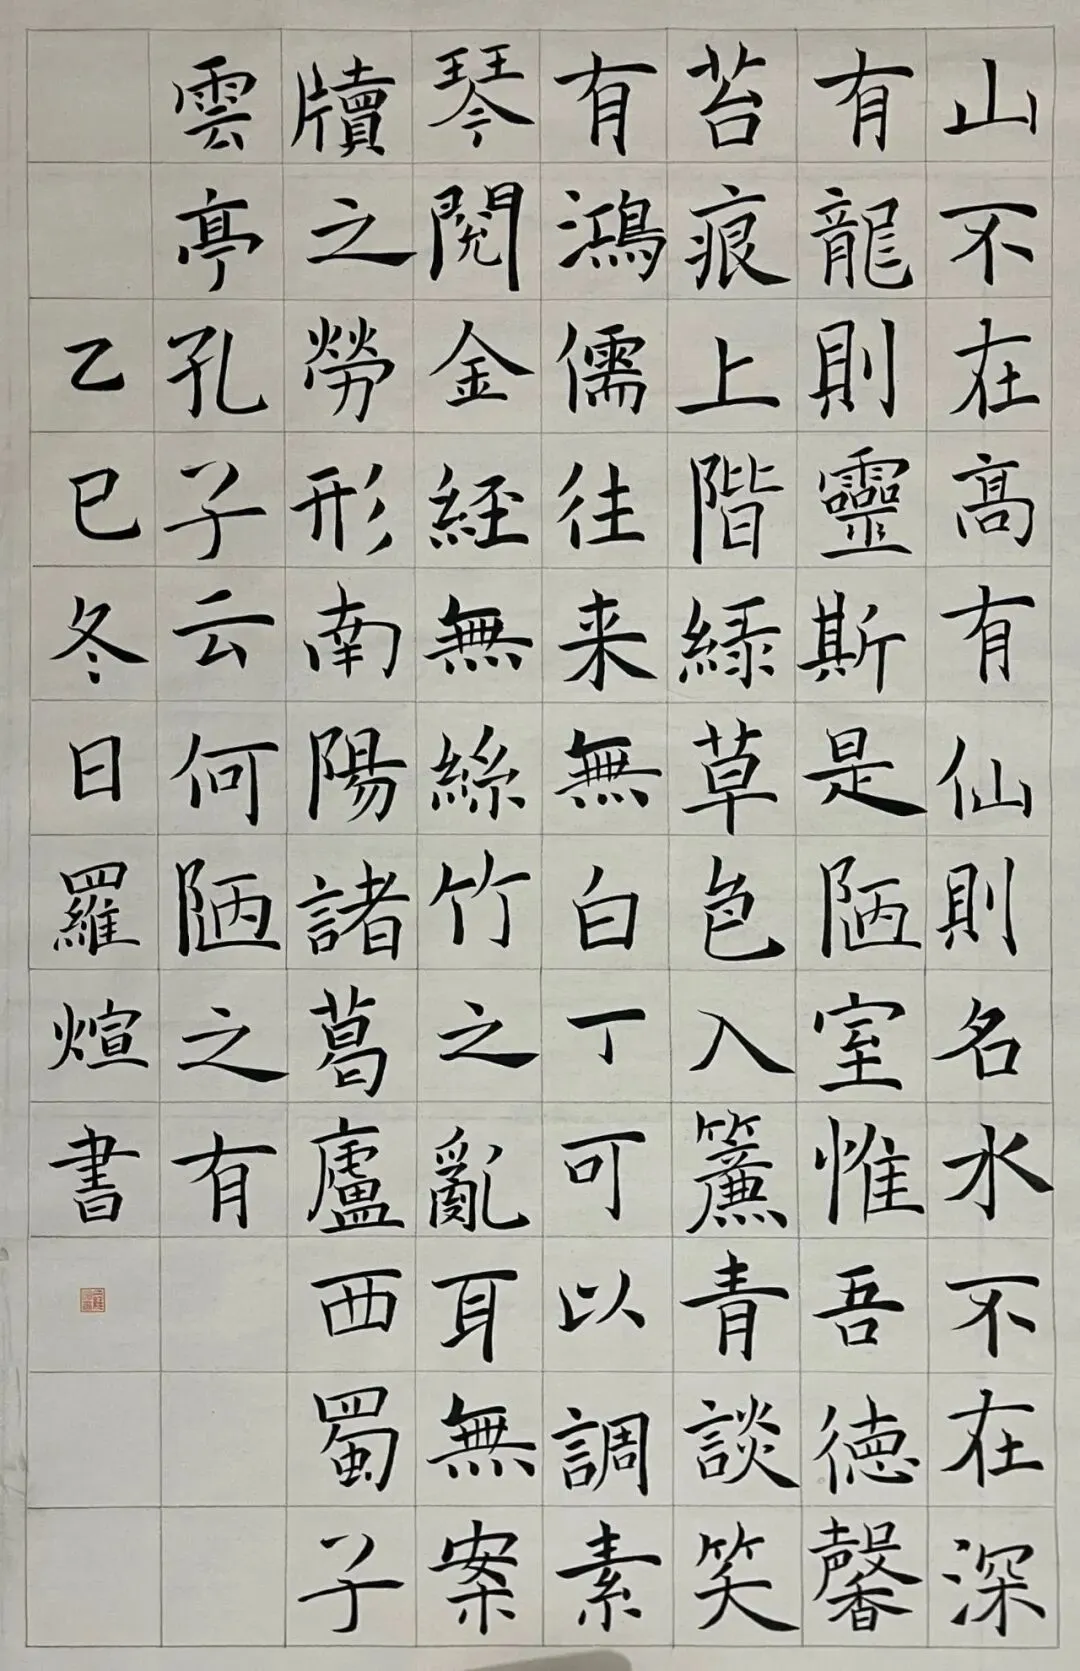 山不在高有仙則名水不在深
有龍則靈斯是陋室惟吾德馨
苔痕上階緑草色入簾青談笑
有鴻儒往来無白丁可以調素
琴閲金經無絲竹之亂耳無案
牘之勞形南陽諸葛廬西蜀子
雲亭孔子云何陋之有
乙巳冬日羅煊書